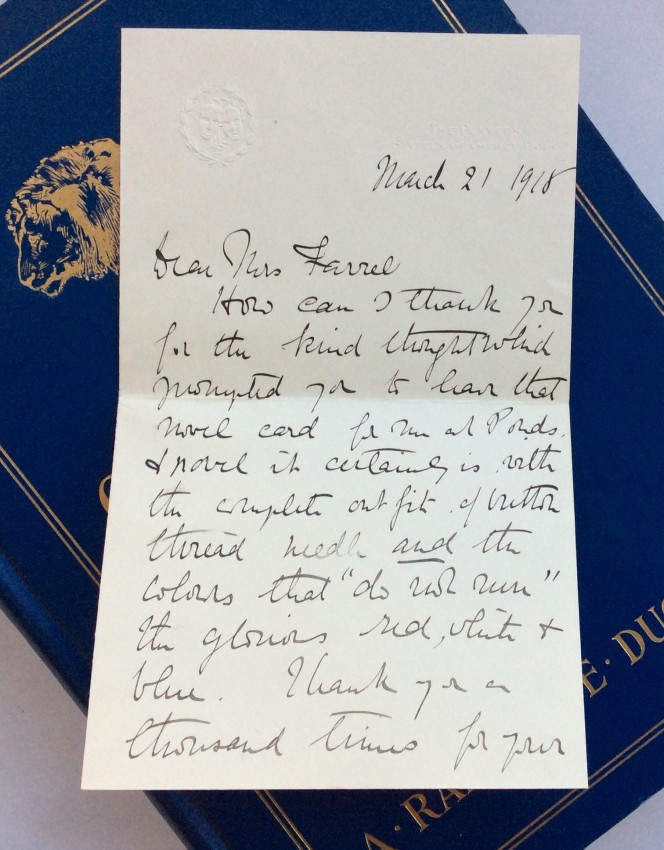 THE PLAYERS
March 21 1918
Dear Mrs Farrel
How can I thank you
for the kind thought which
prompted you to leave that
novel card for me at Pond's.
& novel it certainly is with
the complete outfit of button
thread needle and the
colours that "do not run"
the glorious red, white &
blue. Thank you a
thousand times for your
E. DU
A. RA